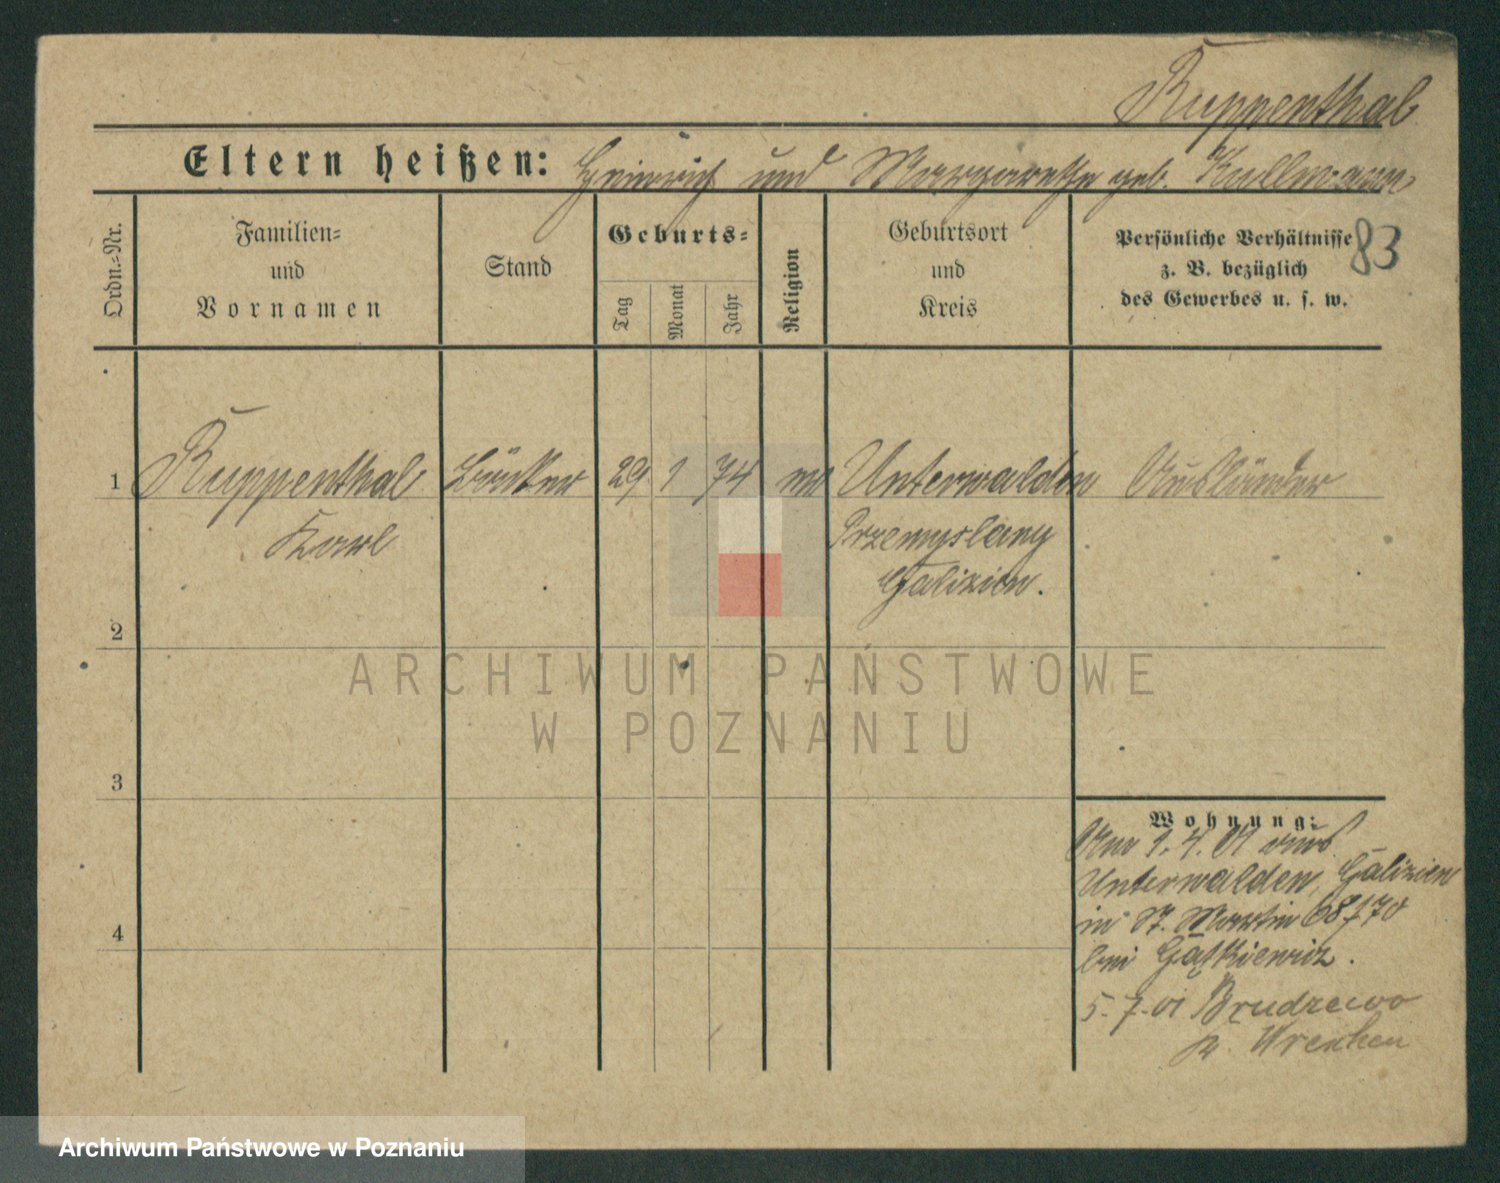 Ruppenthal
Eltern heißen: Heinrich und Margarethe geb. Kullmann
Ordn.-Nr.
Familien-
und
Vornamen
Stand
Geburts-
Tag
Monat
Jahr
Religion
Geburtsort
und
Kreis
Persönliche Verhältnisse
z. B. bezüglich
des Gewerbes u. s. w.
83
1 Ruppenthal Bäcker 29 1 74 ev Unterwalden Ausländer
Karl Przemyslany
Galizien.
2
ARCHIWUM PAŃSTWOWE
W POZNANIU
3
Wohnung:
1. 4. 01 aus
Unterwalden, Galizien
in St. Martin 68/70
bei
4
5. 7. 01 Brudzewo
Kr. Wreschen
Archiwum Państwowe w Poznaniu